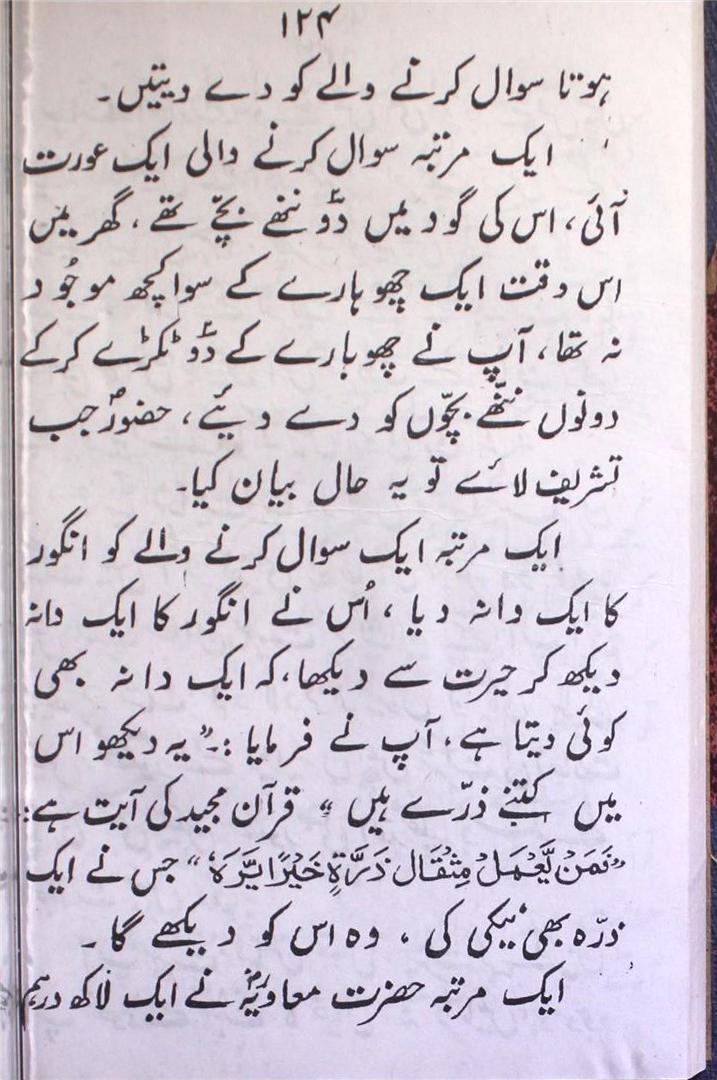 ۱۲۴
ہوتا سوال کرنے والے کو دے دیتیں۔
ایک مرتبہ سوال کرنے والی ایک عورت
آئی، اس کی گود میں دو ننھے بچّے تھے، گھر میں
اس وقت ایک چھوہارے کے سوا کچھ موجُود
نہ تھا، آپ نے چھوہارے کے دو ٹکڑے کرکے
دونوں ننّھے بچّوں کو دے دیئے، حضورؐ جب
تشریف لائے تو یہ حال بیان کیا۔
ایک مرتبہ ایک سوال کرنے والے کو انگور
کا ایک دانہ دیا، اُس نے انگور کا ایک دانہ
دیکھ کر حیرت سے دیکھا، کہ ایک دانہ بھی
کوئی دیتا ہے، آپ نے فرمایا :۔ "یہ دیکھو اس
میں کتنے ذرّے ہیں" قرآن مجید کی آیت ہے:
"فَمَنْ يَّعْمَلْ مِثْقَالَ ذَرَّةٍ خَيْرًا يَّرَهٗ" جس نے ایک
ذرّہ بھی نیکی کی، وہ اس کو دیکھے گا۔
ایک مرتبہ حضرت معاویہؓ نے ایک لاکھ درہم